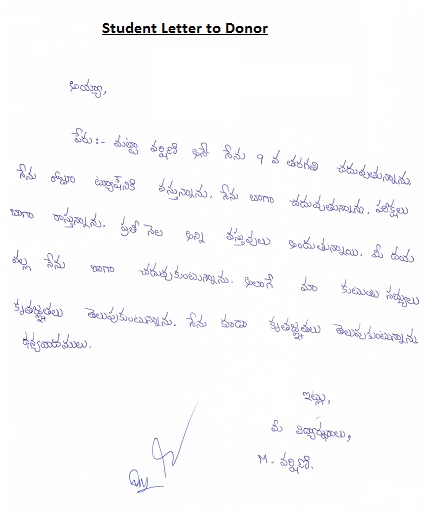 Student Letter to Donor
అయ్యా,
పేరు:- మట్టా వర్షిణి అనే నేను 9 వ తరగతి చదువుతున్నాను.
నేను రోజూ ట్యూషన్‌కి వస్తున్నాను. నేను బాగా చదువుతున్నాను. పరీక్షలు
బాగా రాస్తున్నాను. ప్రతీ నెల అన్ని వస్తువులు అందుతున్నాయి. మీ దయ
వల్ల నేను బాగా చదువుకుంటున్నాను. అలాగే మా కుటుంబ సభ్యులు
కృతజ్ఞతలు తెలుపుకుంటున్నాను. నేను కూడా కృతజ్ఞతలు తెలుపుకుంటున్నాను.
ధన్యవాదములు.
ఇట్లు,
మీ విద్యార్థులు,
M. వర్షిణి.